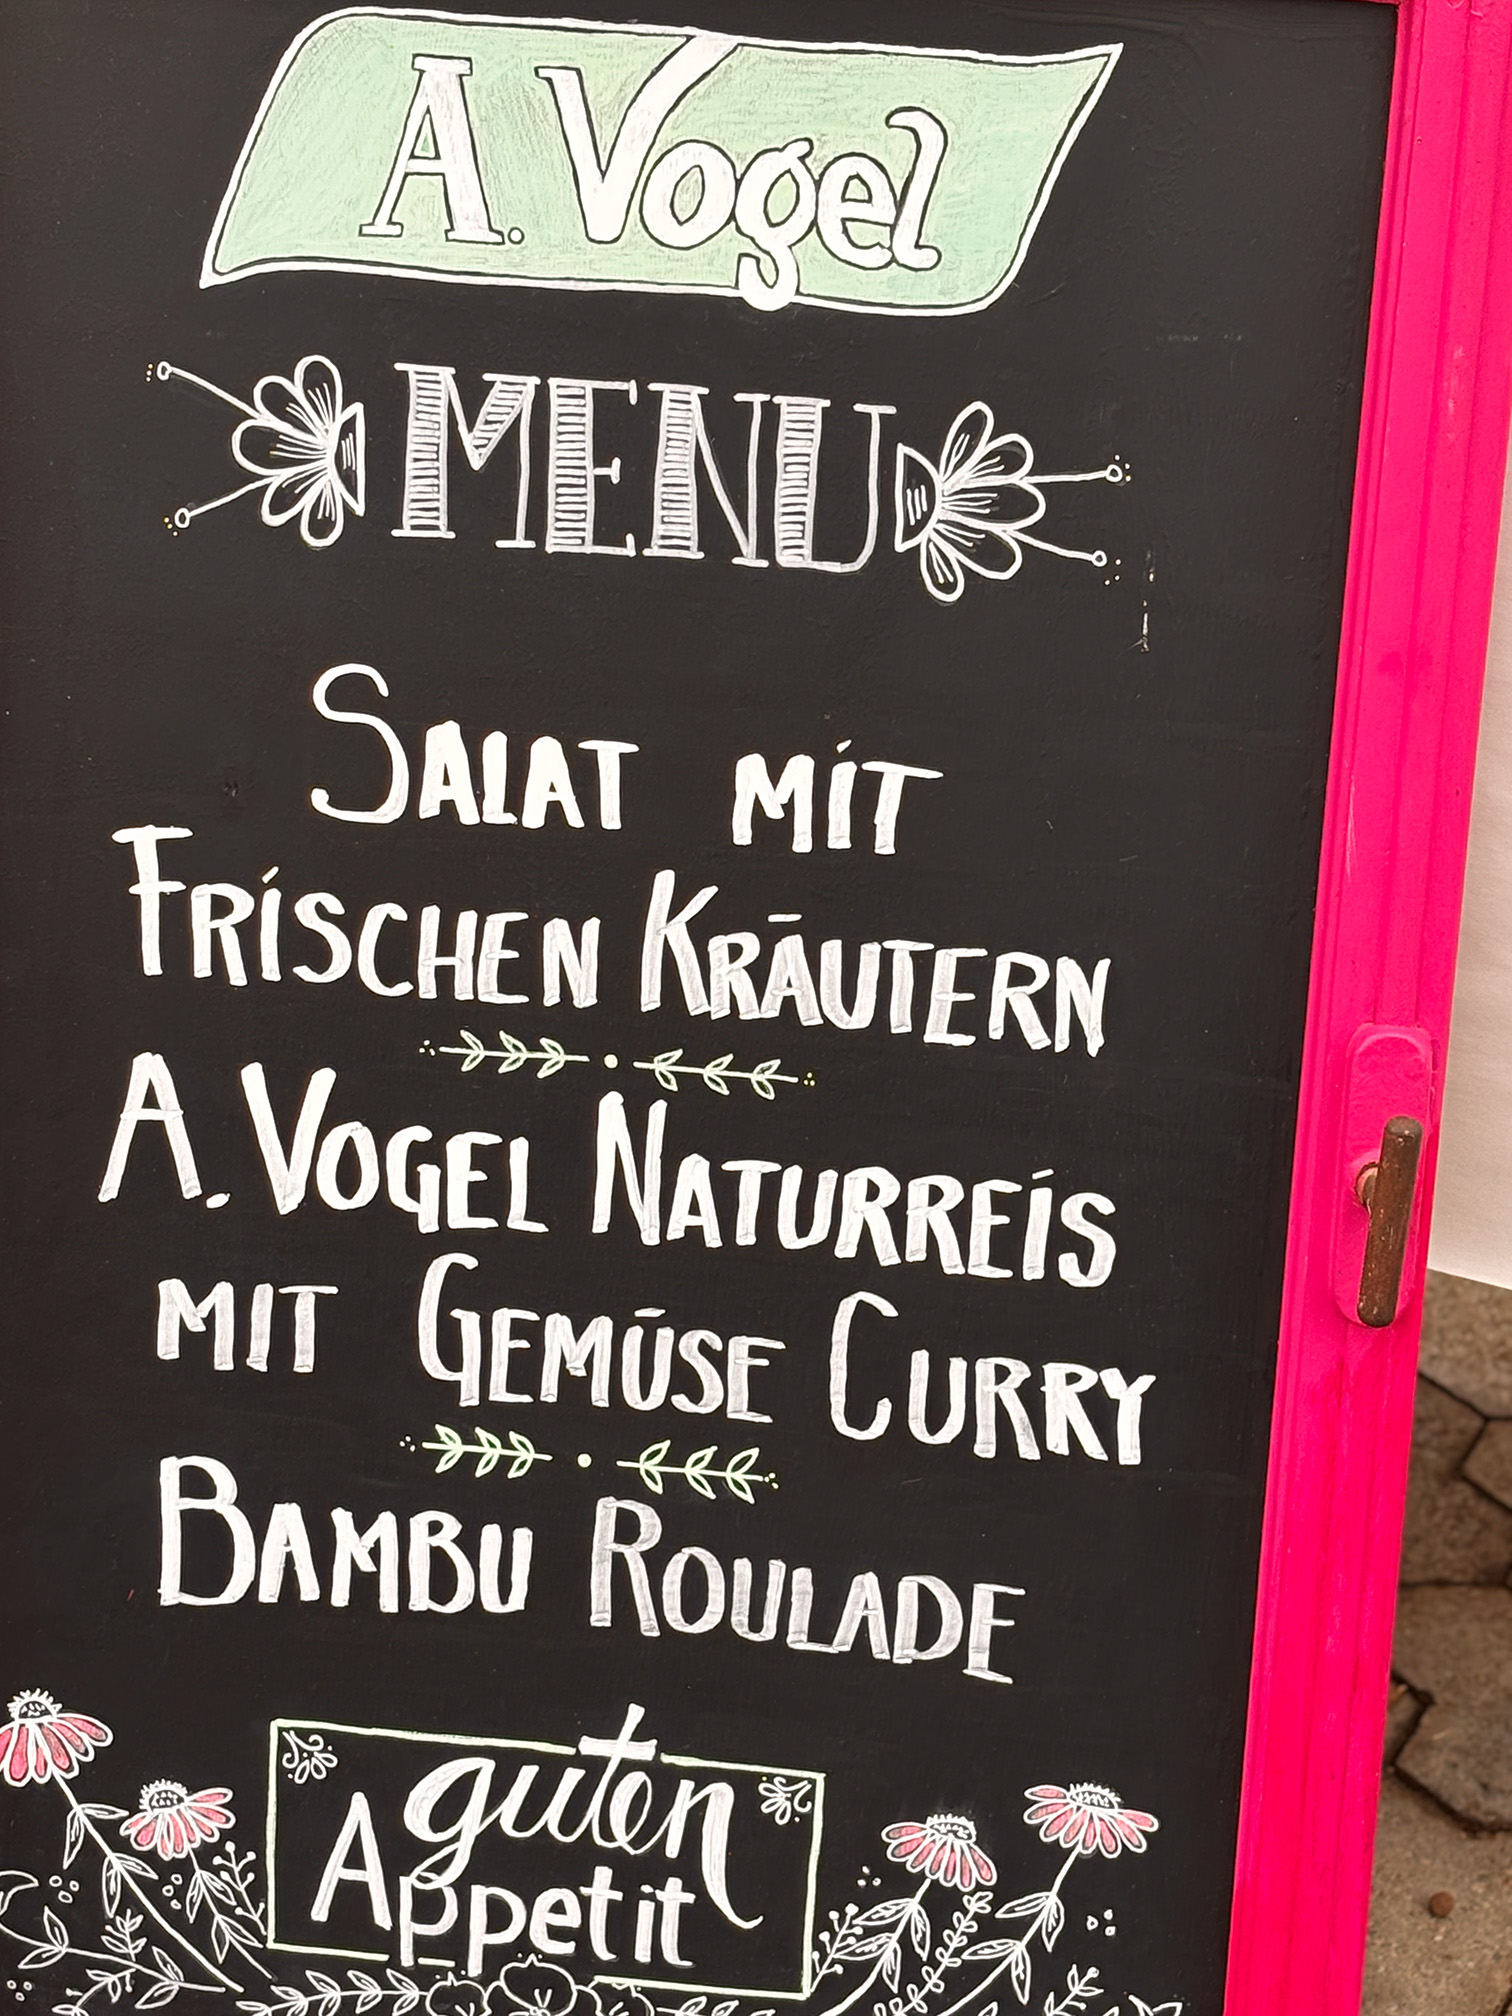 A. Vogel
MENU
SALAT MIT
FRISCHEN KRÄUTERN
A. VOGEL NATURREIS
MIT GEMÜSE CURRY
BAMBU ROULADE
guten
Appetit